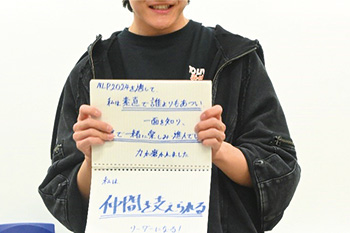 NLP2024を通して、
私は素直で誰よりもあつい
一面を知り、
で一緒に楽しみ進んでいく
力が磨かれました
私は
仲間を支えられる
リーダーになる!